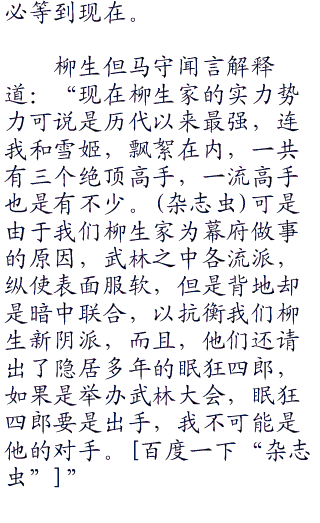 必等到现在。
柳生但马守闻言解释
道：“现在柳生家的实力势
力可说是历代以来最强，连
我和雪姬，飘絮在内，一共
有三个绝顶高手，一流高手
也是有不少。(杂志虫)可是
由于我们柳生家为幕府做事
的原因，武林之中各流派，
纵使表面服软，但是背地却
是暗中联合，以抗衡我们柳
生新阴派，而且，他们还请
出了隐居多年的眠狂四郎，
如果是举办武林大会，眠狂
四郎要是出手，我不可能是
他的对手。[百度一下“杂志
虫”]”